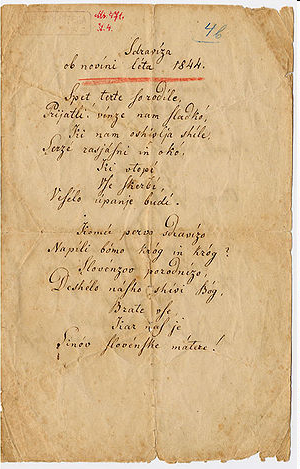 Ms. 471.
N. 4.
4b
Sdravíza
ob novini léta 1844.
Spet terte so rodile,
Prijátli vinze nam sladkó,
Ki nam oshivlja shile,
Serze rasjásni in okó,
Ki vtopi
Vse skerbi,
Veselo úpanje budi.
Komú pervo sdravízo
Napíli bómo króg in króg?
Slovenzov porodnízo,
Deshélo násho shivi Bóg,
Brate vse,
Kar nas je
Sinov slovénske mátere!